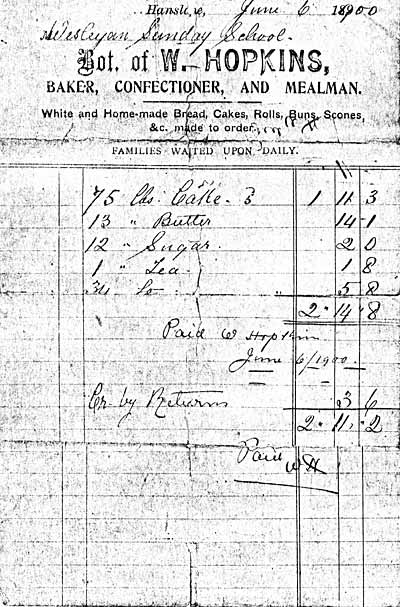 Hanslope, June 6 1900
Wesleyan Sunday School.
Bot. of W. HOPKINS,
BAKER, CONFECTIONER, AND MEALMAN.
White and Home-made Bread, Cakes, Rolls, Buns, Scones,
&c. made to order.
FAMILIES WAITED UPON DAILY.
75 lbs. Cake. 5 1 11 3
13 " Butter 14 1
12 " Sugar. 2 0
1 " Tea. 1 8
5 8
2 " 14 " 8
Paid W Hopkins
June 6/1900
Cr by Returns 3 6
2 " 11 " 2
Paid
W H